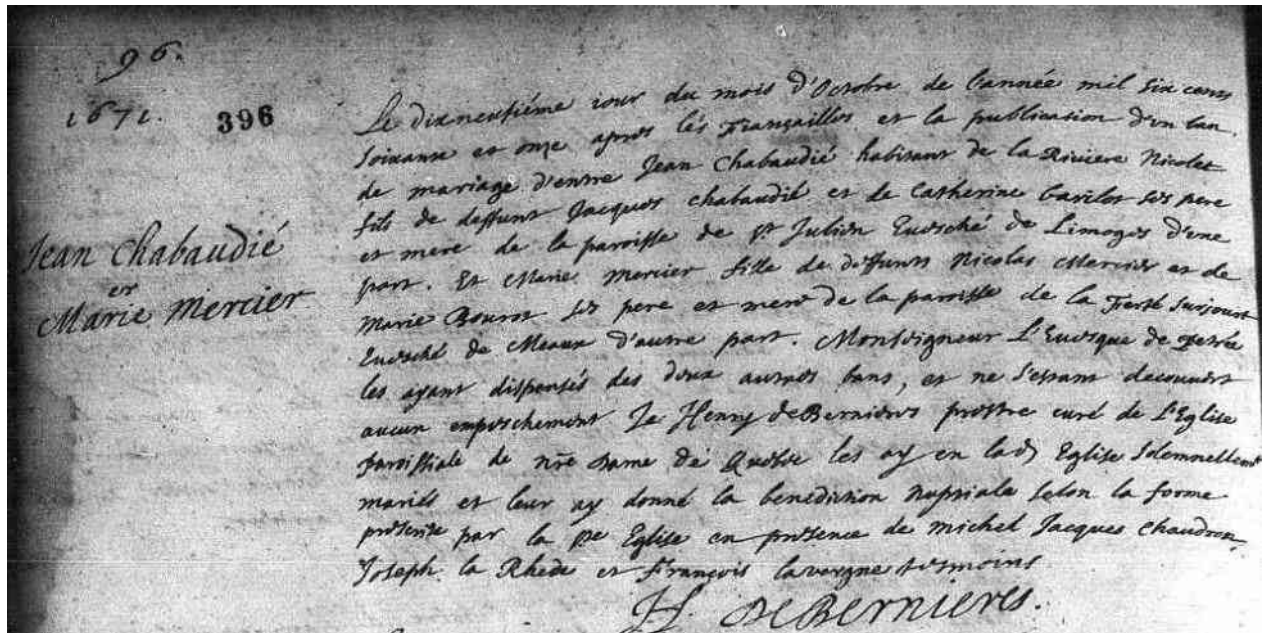 96.
1671. 396
Jean Chabaudié
et
Marie Mercier
Le dixneufiéme iour du mois d'Octobre de l'année mil six cens
soixante et onze apres les fiançailles et la publication d'un ban
de mariage d'entre Jean Chabaudié habitant de la Riviere Nicolet
fils de deffunt Jacques Chabaudié et de Catherine ses pere
et mere de la paroisse de st Julien Euesché de Limoges d'une
part. Et Marie Mercier fille de deffunts Nicolas Mercier et de
Marie ses pere et mere de la paroisse de la Ferté
Euesché de Meaux d'autre part. Monseigneur L'Euesque de Petrée
les ayant dispensés des deux autres bans, et ne s'estant decouuert
aucun empeschement Je Henry de Bernieres prestre curé de L'Eglise
paroissiale de nre Dame de Quebec les ay en lad Eglise solemnellemt
mariés et leur ay donné la benediction nuptiale selon la forme
prescrite par la ste Eglise en presence de michel Jacques Chaudron,
Joseph la et François lavergne tesmoins
H. DeBernieres.